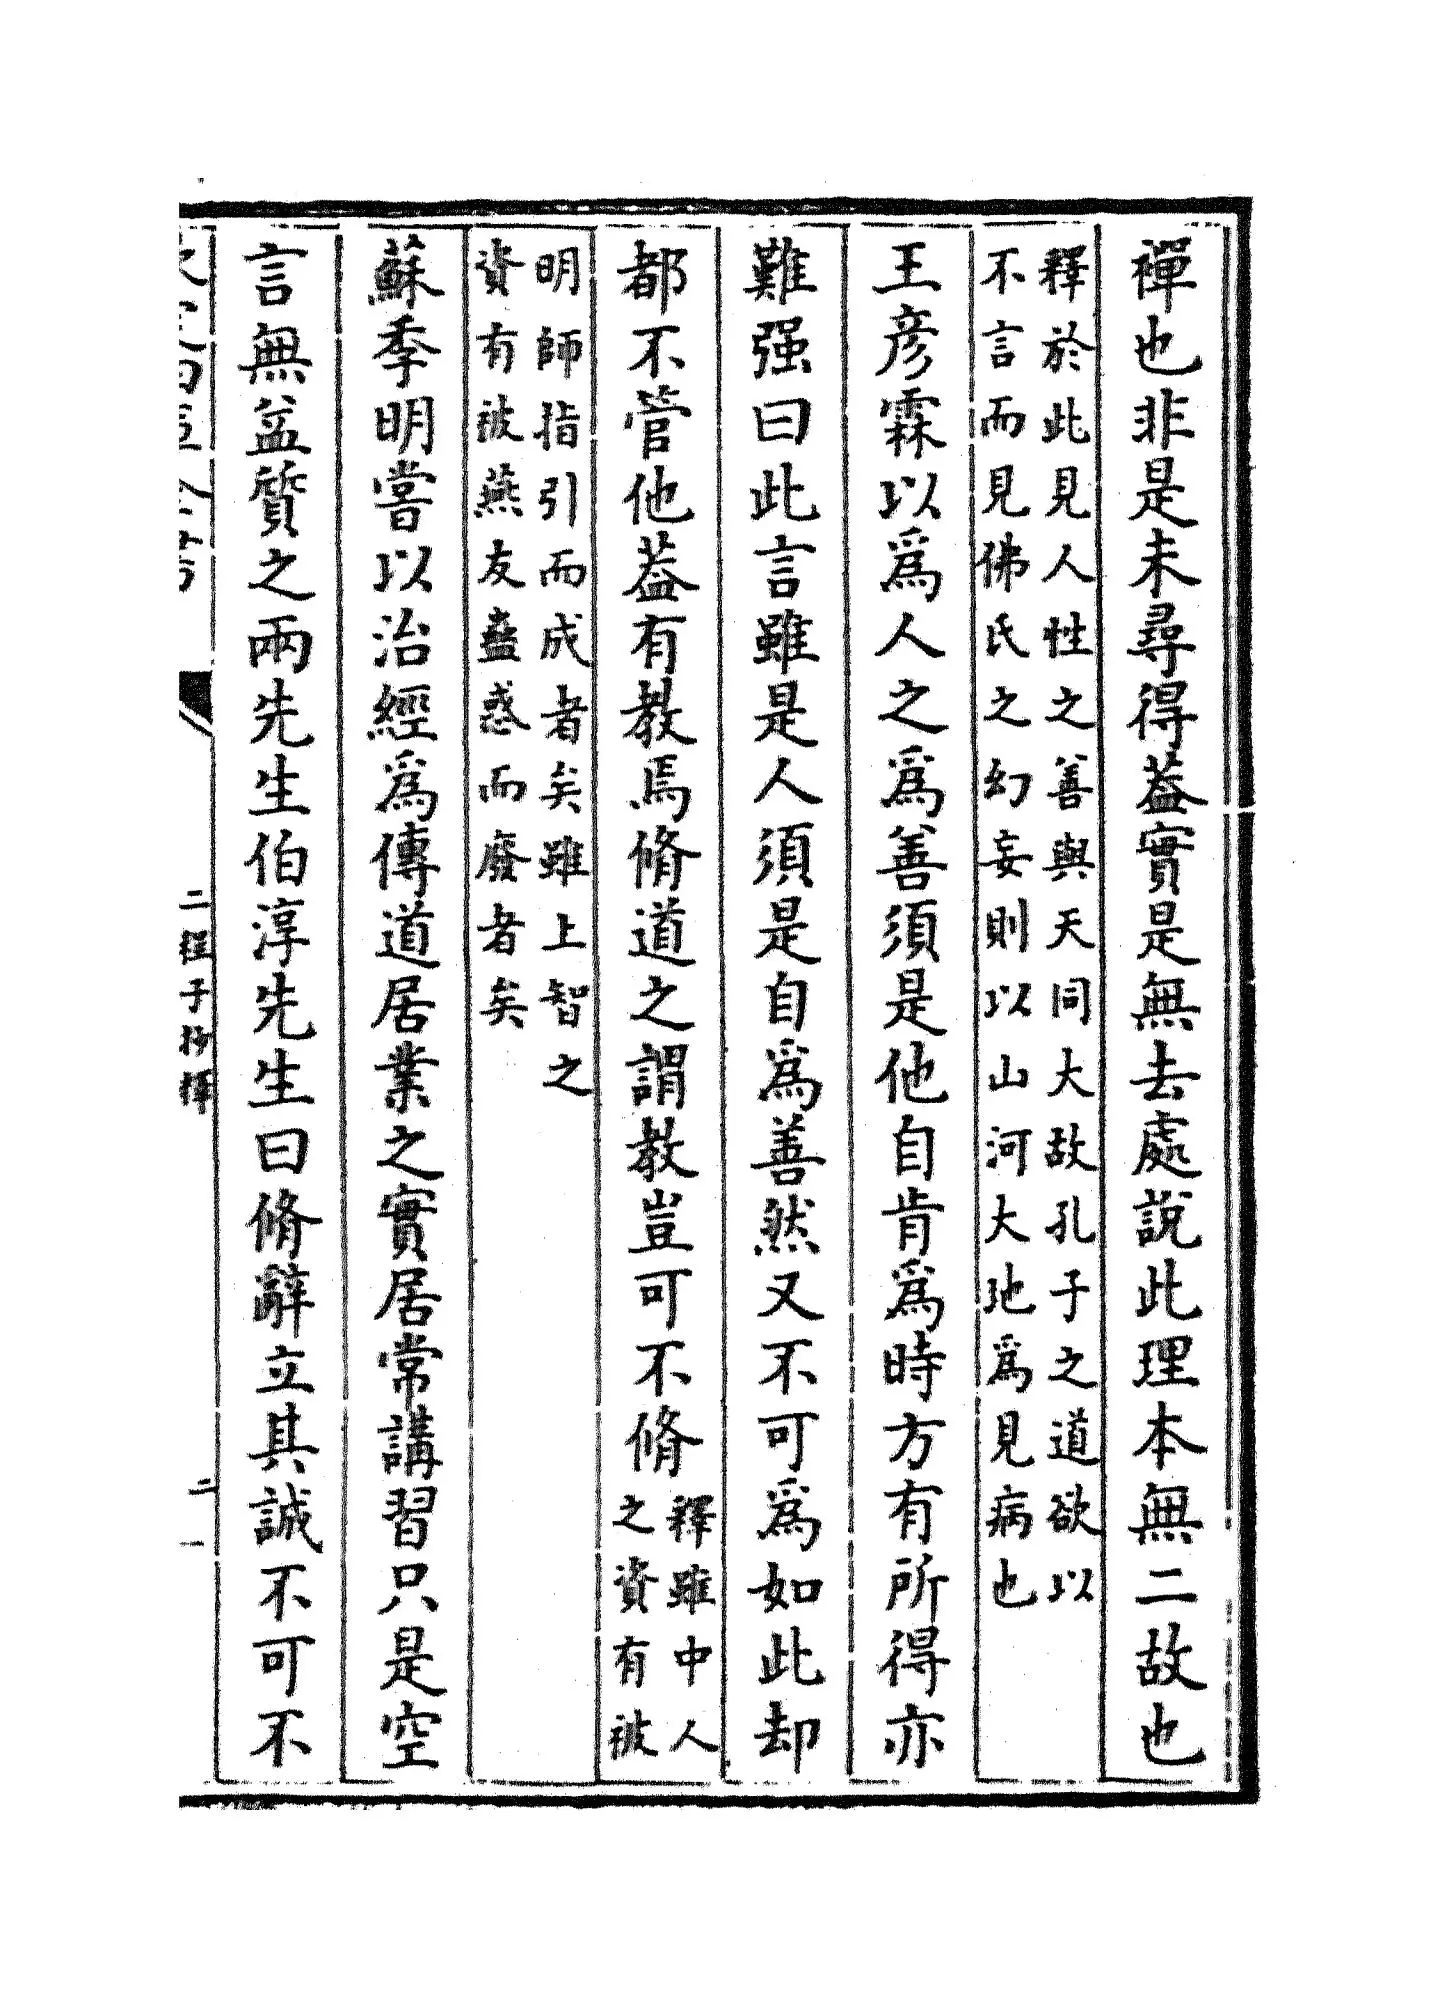 禪也非是未尋得葢實是無去處說此理本無二故也
釋於此見人性之善與天同大故孔子之道欲以
不言而見佛氏之幻妄則以山河大地爲見病也
王彦霖以爲人之爲善須是他自肯爲時方有所得亦
難强曰此言雖是人須是自爲善然又不可爲如此却
都不管他葢有教焉脩道之謂教豈可不脩
釋雖中人
之資有被
明師指引而成者矣雖上智之
資有被燕友蠱惑而廢者矣
蘇季明嘗以治經爲傳道居業之實居常講習只是空
言無益質之兩先生伯淳先生曰脩辭立其誠不可不
二程子抄釋
二